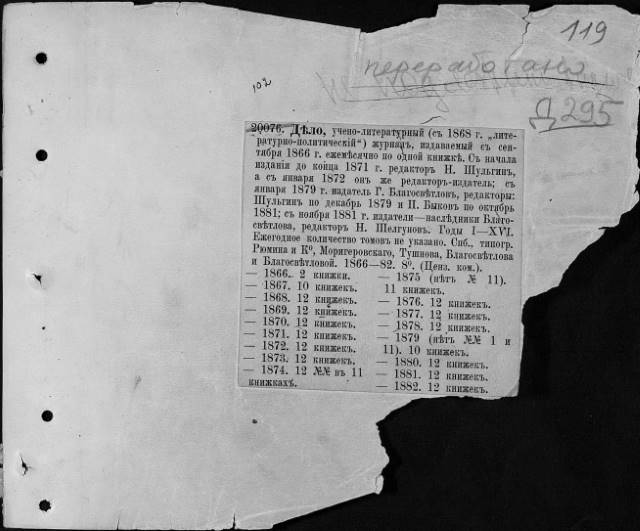 119
переработано
102
Д 295
20076. Дѣло, учено-литературный (съ 1868 г. „лите-
ратурно-политическій“) журналъ, издаваемый съ сен-
тября 1866 г. ежемѣсячно по одной книжкѣ. Съ начала
изданія до конца 1871 г. редакторъ Н. Шульгинъ,
а съ января 1872 онъ же редакторъ-издатель; съ
января 1879 г. издатель Г. Благосвѣтловъ, редакторы:
Шульгинъ по декабрь 1879 и П. Быковъ по октябрь
1881; съ ноября 1881 г. издатели—наслѣдники Благо-
свѣтлова, редакторъ Н. Шелгуновъ. Годы I—XVI.
Ежегодное количество томовъ не указано. Спб., типогр.
Рюмина и К⁰, Моригеровскаго, Тушнова, Благосвѣтлова
и Благосвѣтловой. 1866—82. 8⁰. (Ценз. ком.).
— 1866. 2 книжки.
— 1867. 10 книжекъ.
— 1868. 12 книжекъ.
— 1869. 12 книжекъ.
— 1870. 12 книжекъ.
— 1871. 12 книжекъ.
— 1872. 12 книжекъ.
— 1873. 12 книжекъ.
— 1874. 12 №№ въ 11
книжкахъ.
— 1875 (нѣтъ № 11).
11 книжекъ.
— 1876. 12 книжекъ.
— 1877. 12 книжекъ.
— 1878. 12 книжекъ.
— 1879 (нѣтъ №№ 1 и
11). 10 книжекъ.
— 1880. 12 книжекъ.
— 1881. 12 книжекъ.
— 1882. 12 книжекъ.